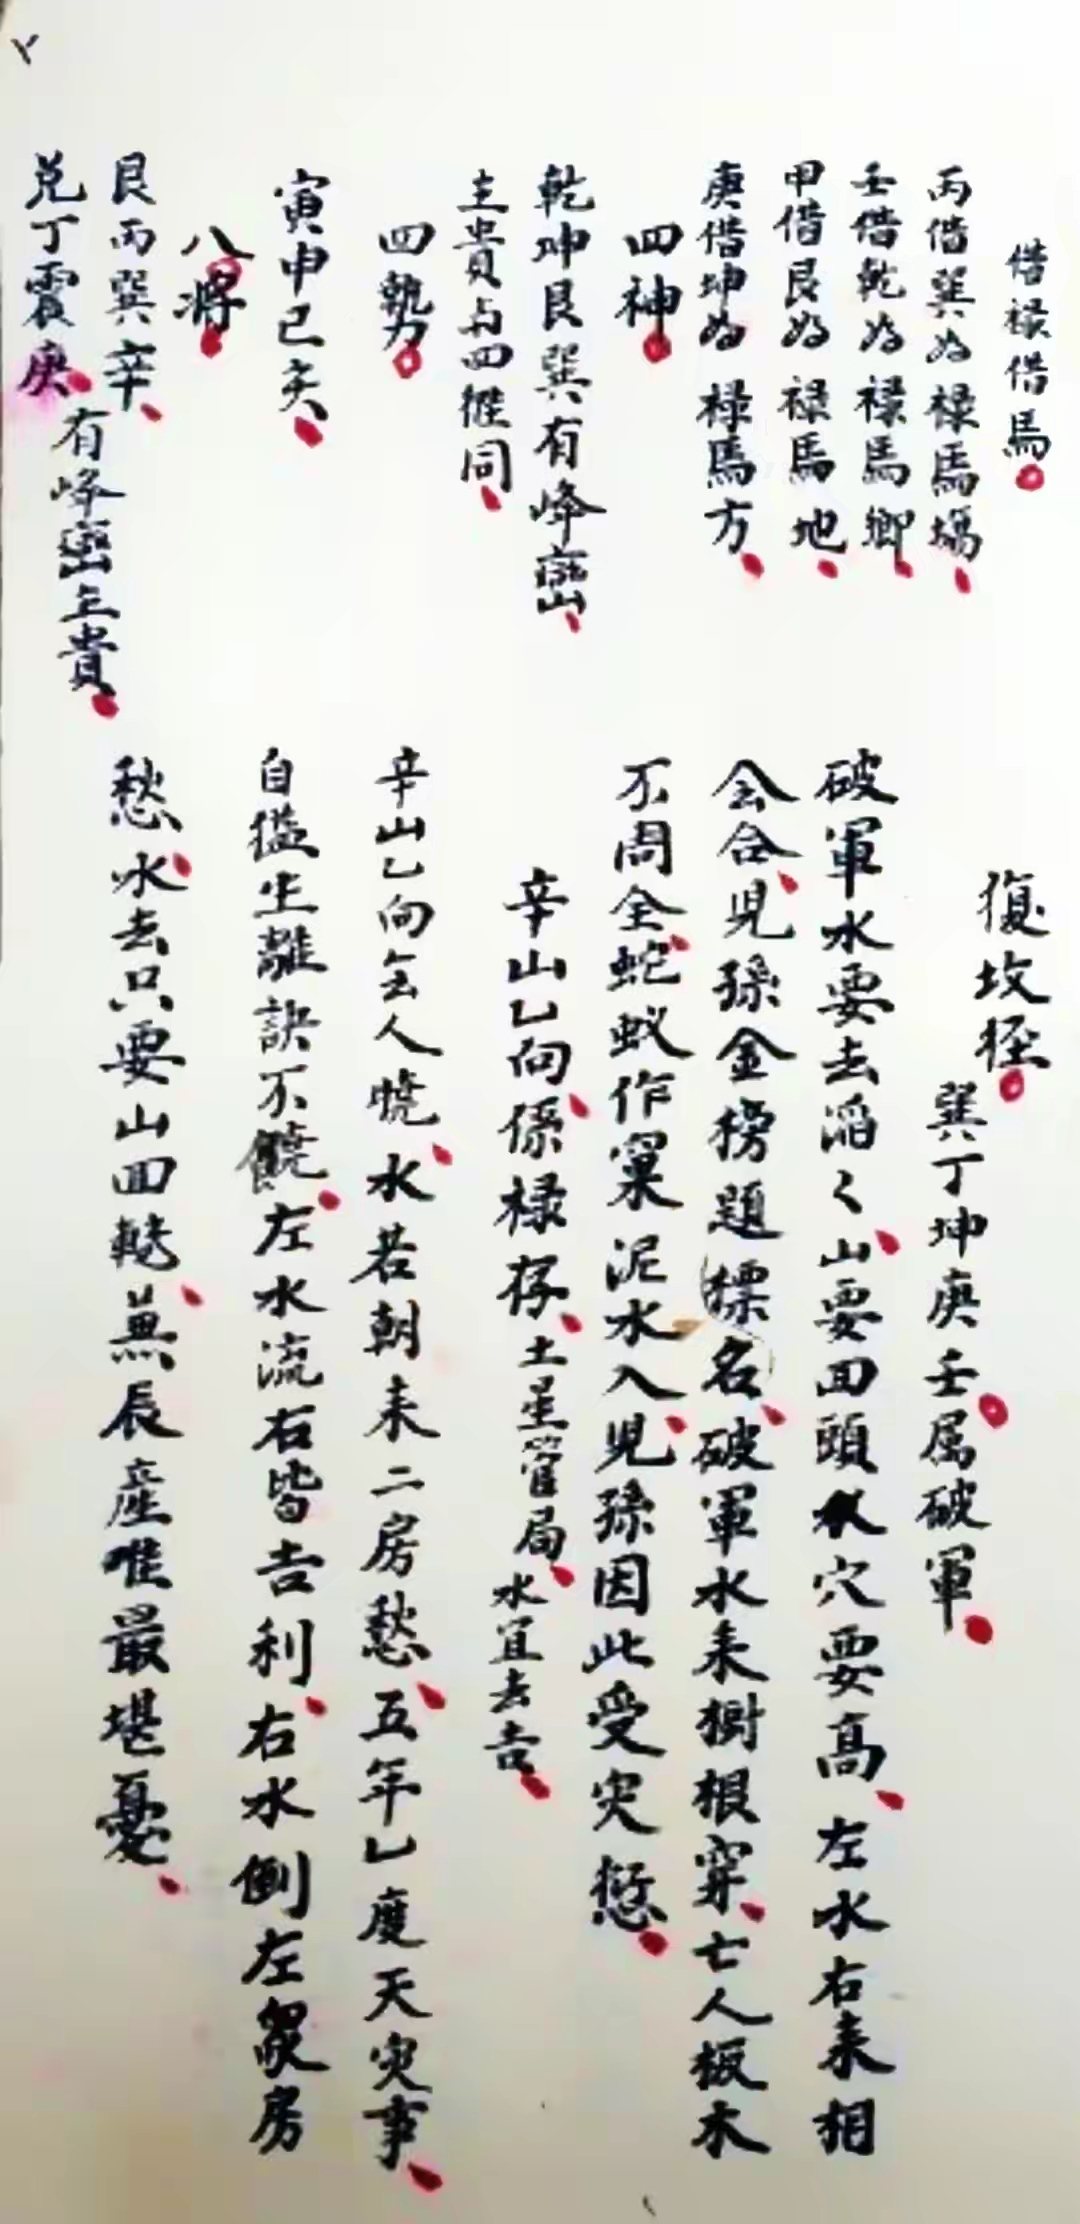 借禄借馬
丙借巽為禄馬塲
壬借乾為禄馬鄉
甲借艮為禄馬地
庚借坤為禄馬方
四神
乾坤艮巽有峰巒
主貴與四同
四勢
寅申巳亥
八將
艮丙巽辛
兑丁震庚
有峰巒主貴
復坟径
巽丁坤庚壬属破軍
破軍水要去滔々山要回頭穴要高左水右来相
会合児孫金榜題標名破軍水来樹根穿亡人板木
不周全蛇蚁作窠泥水入児孫因此受灾愆
辛山乙向係禄存土星管局水宜去吉
辛山乙向人水若朝来二房愁五年乙度天灾事
自缢生離訣不饒左水流右皆吉利右水倒左眾房
愁水去只要山回無辰産唯最堪憂